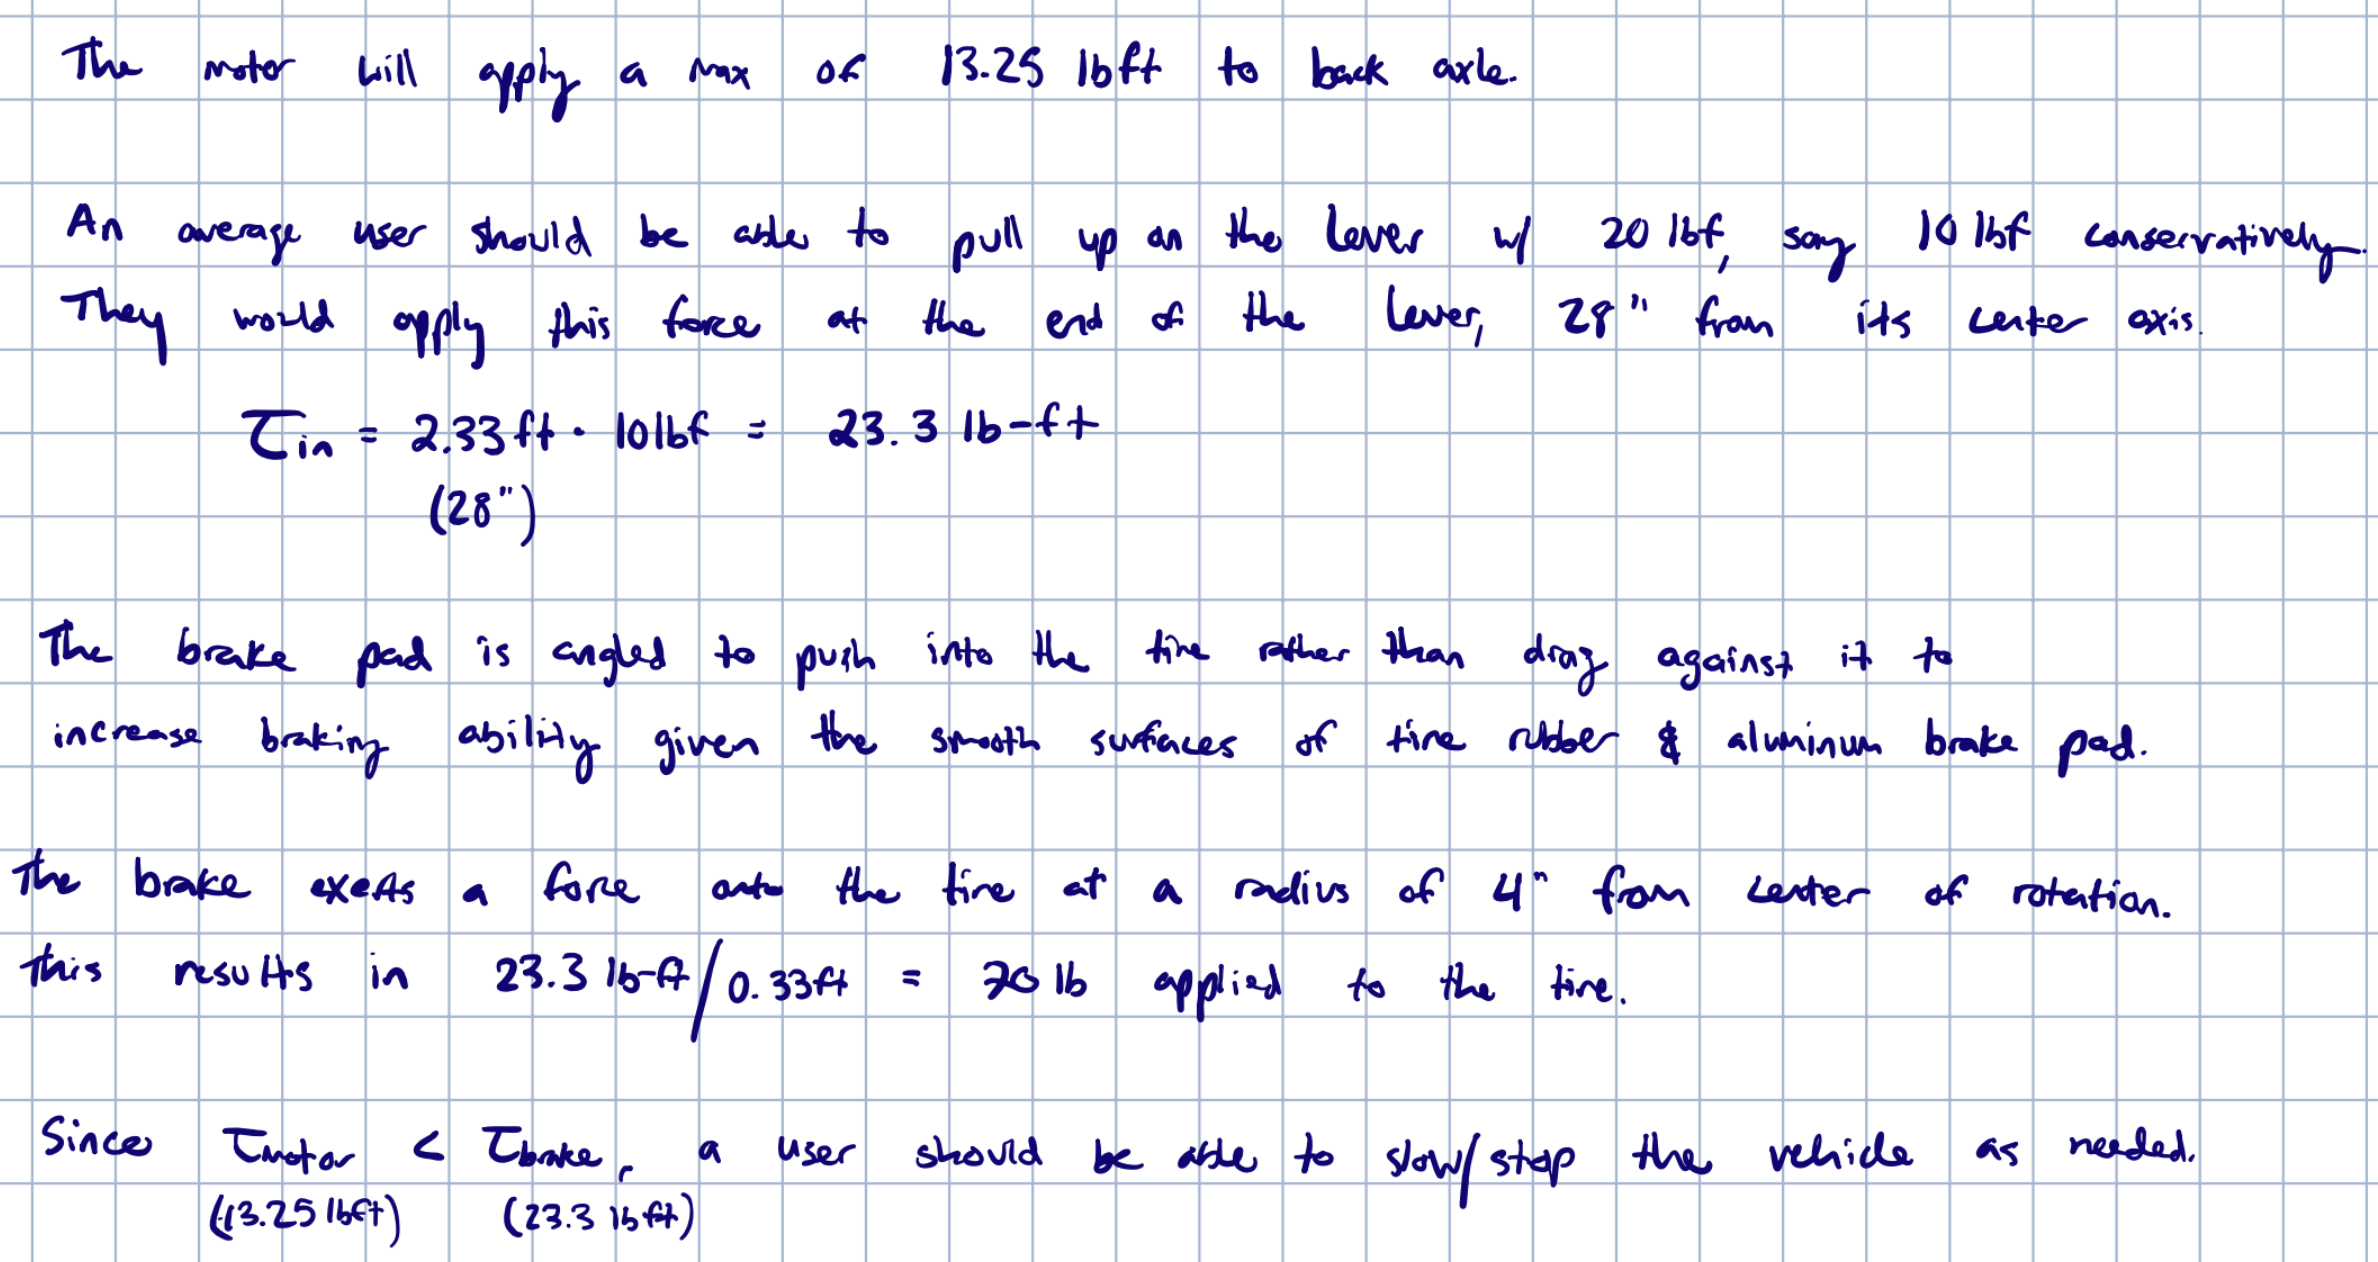 The motor will apply a max of 13.25 lbft to back axle.
An average user should be able to pull up on the lever w/ 20 lbf, say 10 lbf conservatively.
They would apply this force at the end of the lever, 28" from its center axis.
τin = 2.33ft · 10lbf = 23.3 lb-ft
(28")
The brake pad is angled to push into the tire rather than drag against it to
increase braking ability given the smooth surfaces of tire rubber & aluminum brake pad.
The brake exerts a force onto the tire at a radius of 4" from center of rotation.
This results in 23.3 lb-ft/0.33ft = 70 lb applied to the tire.
Since τmotor < τbrake, a user should be able to slow/stop the vehicle as needed.
(13.25 lbft) (23.3 lbft)